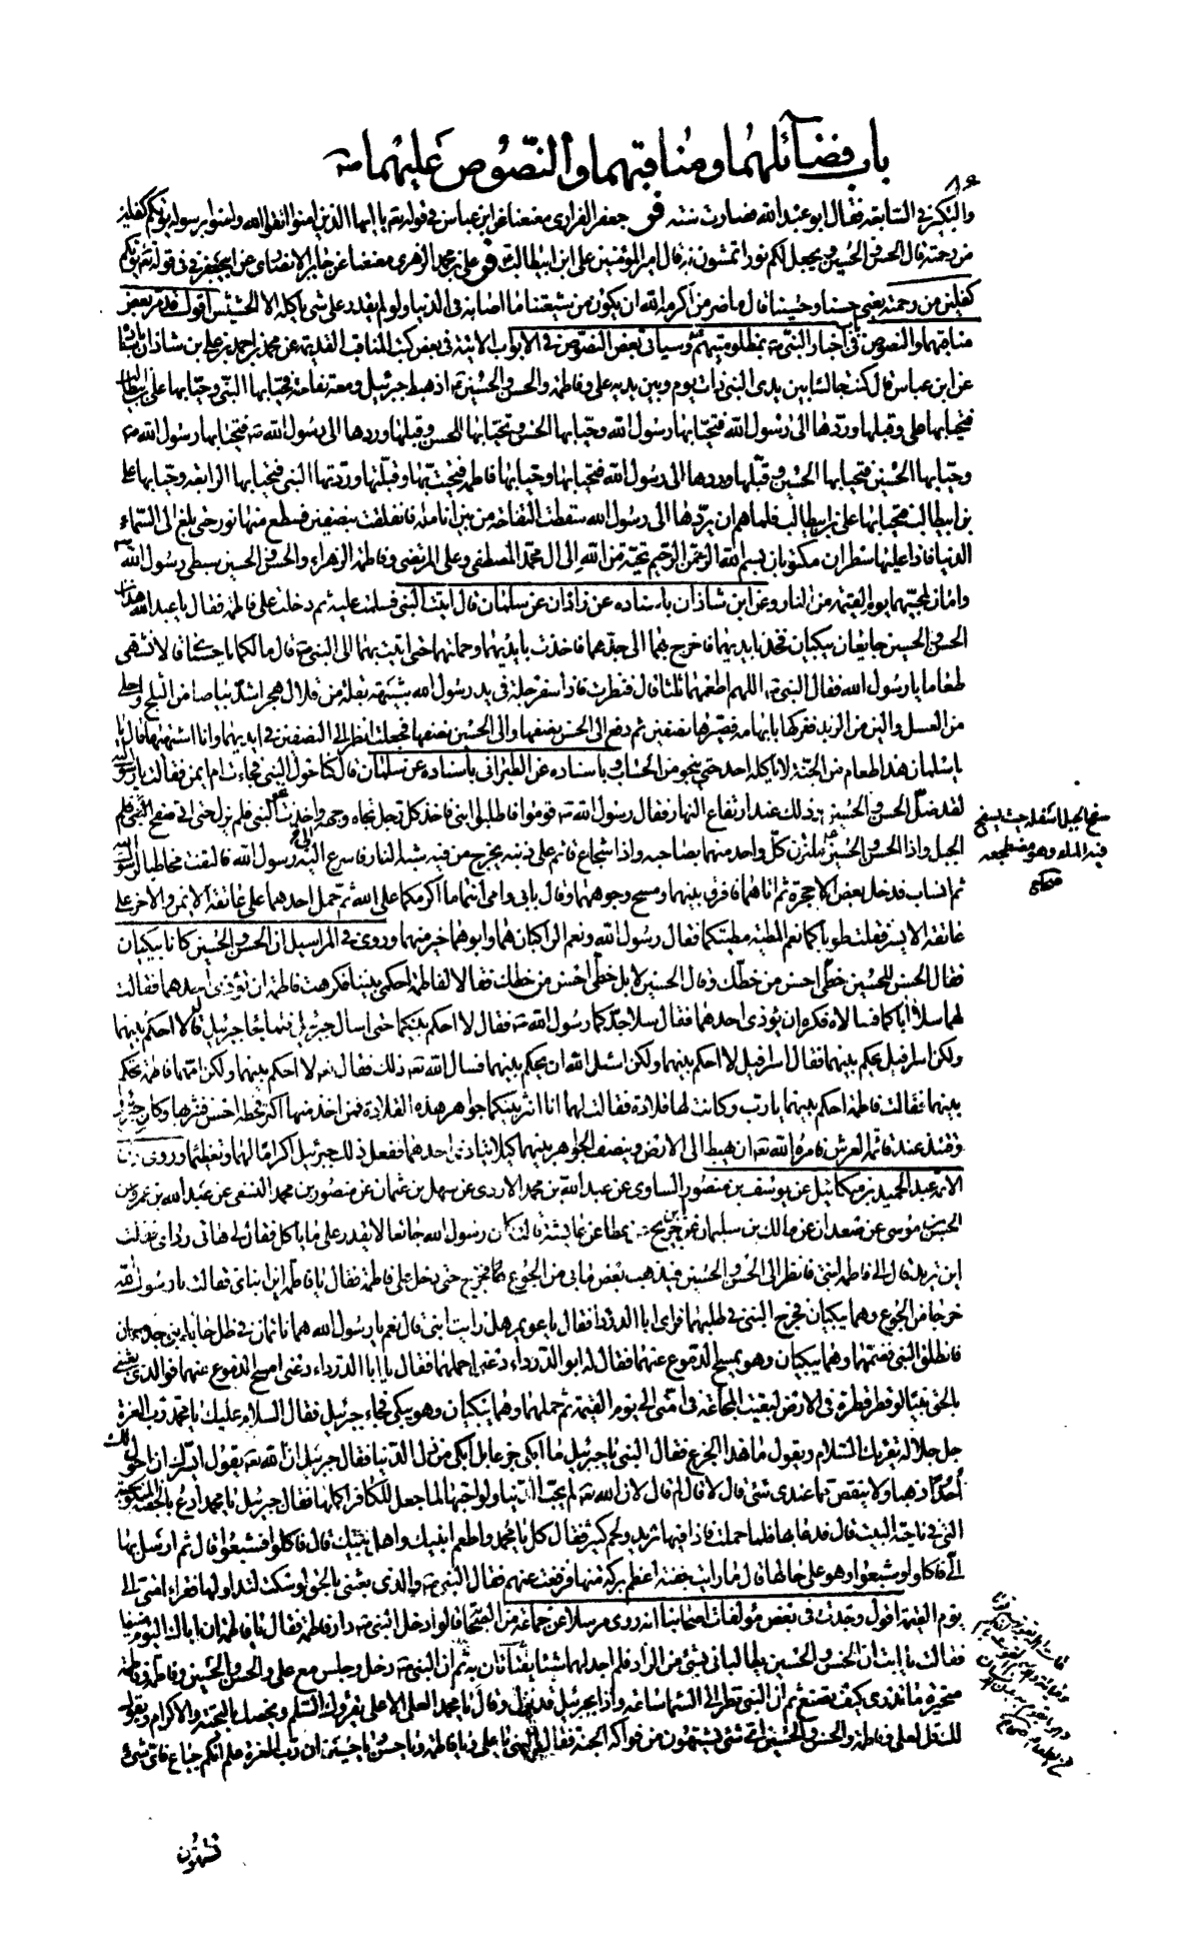 باب فضائلهما ومناقبهما والنصوص عليهما ص
والبكر في السابعة فقال ابو عبد الله فصارت سنة فر جعفر الفزاري معنعنا عن ابن عباس في قوله تع يا ايها الذين امنوا اتقوا الله وامنوا برسوله يؤتكم كفلين
من رحمته قال الحسن والحسين ويجعل لكم نورا تمشون به قال امير المؤمنين علي ابن ابيطالب فر علي بن محمد الزهري معنعنا عن جابر الانصاري عن ابي جعفر في قوله تع يؤتكم
كفلين من رحمته يعني حسنا وحسينا قال ما ضر من اكرمه الله ان يكون من شيعتنا ما اصابه في الدنيا ولو لم يقدر على شئ ياكله الا الحشيش اقول قد مر بعض
مناقبهما والنصوص في اخبار النبي ص بمظلوميتهم وسياتي بعض النصوص في الابواب الاتية في بعض كتب المناقب القديمة عن محمد بن احمد بن علي بن شاذان باسناده
عن ابن عباس قال كنت جالسا بين يدي النبي ذات يوم وبين يديه علي وفاطمة والحسن والحسين اذ هبط جبرئيل ومعه تفاحة فحيا بها النبي وحيا بها علي بن ابيطالب
فتحيا بها علي وقبلها وردها الى رسول الله فتحيا بها رسول الله وحيا بها الحسن وتحيا بها الحسن وقبلها وردها الى رسول الله ص فتحيا بها رسول الله ص
وحيا بها الحسين فتحيا بها الحسين وقبلها وردها الى رسول الله فتحيا بها وحيا بها فاطمة فتحيت بها وقبلتها وردتها الى النبي فتحيا بها الرابعة وحيا بها علي
بن ابيطالب فتحيا بها علي بن ابيطالب فلما هم ان يردها الى رسول الله سقطت التفاحة من بين انامله فانفلقت بنصفين فسطع منها نور حتى بلغ الى السماء
الدنيا فاذا عليها سطران مكتوبان بسم الله الرحمن الرحيم تحية من الله الى محمد المصطفى وعلي المرتضى وفاطمة الزهراء والحسن والحسين سبطي رسول الله
وامان لمحبيهما يوم القيمة من النار وعن ابن شاذان باسناده عن زاذان عن سلمان قال اتيت النبي فسلمت عليه ثم دخلت على فاطمة فقال يا عبد الله هذان
الحسن والحسين جائعان يبكيان فخذ بايديهما فاخرج بهما الى جدهما فاخذت بايديهما وحملتهما حتى اتيت بهما الى النبي ص فقال ما لكما يا حسناي قالا نشتهي
طعاما يا رسول الله فقال النبي ص اللهم اطعمهما ثلثا قال فنظرت فاذا سفرجلة في يد رسول الله شبيهة بقلة من قلال هجر اشد بياضا من الثلج واحلى
من العسل والين من الزبد ففركها بابهامه فصيرها نصفين ثم دفع الى الحسن نصفها والى الحسين نصفها فجعلت انظر الى النصفين في ايديهما وانا اشتهيها قال يا
يا سلمان هذا طعام من الجنة لا ياكله احد حتى ينجو من الحساب وباسناده عن الطبراني باسناده عن سلمان قال كنا حول النبي فجاءت ام ايمن فقالت يا رسول الله
لقد ضل الحسن والحسين وذلك عند ارتفاع النهار فقال رسول الله ص قوموا فاطلبوا ابني فاخذ كل رجل تجاه وجهه واخذت نحو النبي فلم يزل حتى اتى صفح الجبل
سفح الجبل اسفله حيث يسفح
فيه الماء وهو مضطجعه
الجبل واذا الحسن والحسين ملتزق كل واحد منهما بصاحبه واذا شجاع قائم على ذنبه يخرج من فيه شبه النار فاسرع اليه رسول الله فالتفت مخاطبا لرسول الله
ثم انساب فدخل بعض الاجحرة ثم اتاهما فافرق بينهما ومسح وجوههما وقال بابي وامي انتما ما اكرمكما على الله ثم حمل احدهما على عاتقه الايمن والاخر على
عاتقه الايسر فقلت طوباكما نعم المطية مطيتكما فقال رسول الله ونعم الراكبان هما وابوهما خير منهما وروي في المراسيل ان الحسن والحسين كانا يكتبان
فقال الحسن للحسين خطي احسن من خطك وقال الحسين لا بل خطي احسن من خطك فقالا لفاطمة احكمي بيننا فكرهت فاطمة ان تؤذي احدهما فقالت
لهما سلا اباكما فسالاه فكره ان يؤذي احدهما فقال سلا جدكما رسول الله ص فقال لا احكم بينكما حتى اسال جبرئيل فلما جاء جبرئيل قال لا احكم بينهما
ولكن اسرافيل يحكم بينهما فقال اسرافيل لا احكم بينهما ولكن اسئل الله ان يحكم بينهما فسال الله تع ذلك فقال تع لا احكم بينهما ولكن امهما فاطمة تحكم
بينهما فقالت فاطمة احكم بينهما يا رب وكانت لها قلادة فقالت لهما انا انثر بينكما جواهر هذه القلادة فمن اخذ منهما اكثر فخطه احسن فنثرتها وكان جبرئيل
وقتئذ عند قائمة العرش فامره الله تع ان يهبط الى الارض وينصف الجواهر بينهما كيلا يتاذى احدهما ففعل ذلك جبرئيل اكراما لهما وتعظيما وروى ركن
الائمة عبد الحميد بن ميكائيل عن يوسف بن منصور الساوي عن عبد الله بن محمد الازدي عن سهل بن عثمان عن منصور بن محمد النسفي عن عبد الله بن عمرو عن
الحسن بن موسى عن صعدان عن مالك بن سليمان عن ابن جريج عن عطا عن عايشة قالت كان رسول الله جائعا لا يقدر على ما ياكل فقال لي هاتي رداي فقلت
اين تريد قال الى فاطمة ابنتي فانظر الى الحسن والحسين فيذهب بعض ما بي من الجوع فخرج حتى دخل على فاطمة فقال يا فاطمة اين ابناي فقالت يا رسول الله
خرجا من الجوع وهما يبكيان فخرج النبي في طلبهما فراى ابا الدرداء فقال يا عويمر هل رايت ابني قال نعم يا رسول الله هما نائمان في ظل حائط بني جدعان
فانطلق النبي فضمهما وهما يبكيان وهو يمسح الدموع عنهما فقال له ابو الدرداء دعني احملهما فقال يا ابا الدرداء دعني امسح الدموع عنهما فوالذي بعثني
بالحق نبيا لو قطر قطرة في الارض لبقيت المجاعة في امتي الى يوم القيمة ثم حملهما وهما يبكيان وهو يبكي فجاء جبرئيل فقال السلام عليك يا محمد رب العزة
جل جلاله يقرئك السلام ويقول ما هذا الجزع فقال النبي يا جبرئيل ما ابكي جزعا بل ابكي من ذل الدنيا فقال جبرئيل ان الله تع يقول ايسرك ان احول لك
احدا ذهبا ولا ينقص مما عندي شئ قال لا قال لم قال لان الله تع لم يحب الدنيا ولو احبها لما جعل للكافر اكملها فقال جبرئيل يا محمد ادع بالجفنة المنكوسة
التي في ناحية البيت قال فدعا بها فلما حملت فاذا فيها ثريد ولحم كثير فقال كل يا محمد واطعم ابنيك واهل بيتك قال فاكلوا فشبعوا قال ثم ارسل بها
الي فاكلوا وشبعوا وهو على حالها قال ما رايت جفنة اعظم بركة منها فرفعت عنهم فقال النبي ص والذي بعثني بالحق لو سكت لتداولها فقراء امتي الى
يوم القيمة اقول وجدت في بعض مؤلفات اصحابنا انه روي مرسلا عن جماعة من الصحابة قالوا دخل النبي ص دار فاطمة فقال يا فاطمة ان اباك اليوم ضيفك
فقالت يا ابت ان الحسن والحسين يطالباني بشئ من الزاد فلم اجد لهما شيئا يقتاتان به ثم ان النبي ص دخل وجلس مع علي والحسن والحسين وفاطمة وفاطمة
متحيرة ما تدري كيف تصنع ثم ان النبي نظر الى السماء ساعة واذا بجبرئيل قد نزل وقال يا محمد العلي الاعلى يقرؤك السلام ويخصك بالتحية والاكرام ويقول
لك قل لعلي وفاطمة والحسن والحسين اي شئ يشتهون من فواكه الجنة فقال النبي يا علي ويا فاطمة ويا حسن ويا حسين ان رب العزة علم انكم جياع فاي شئ
تشتهون